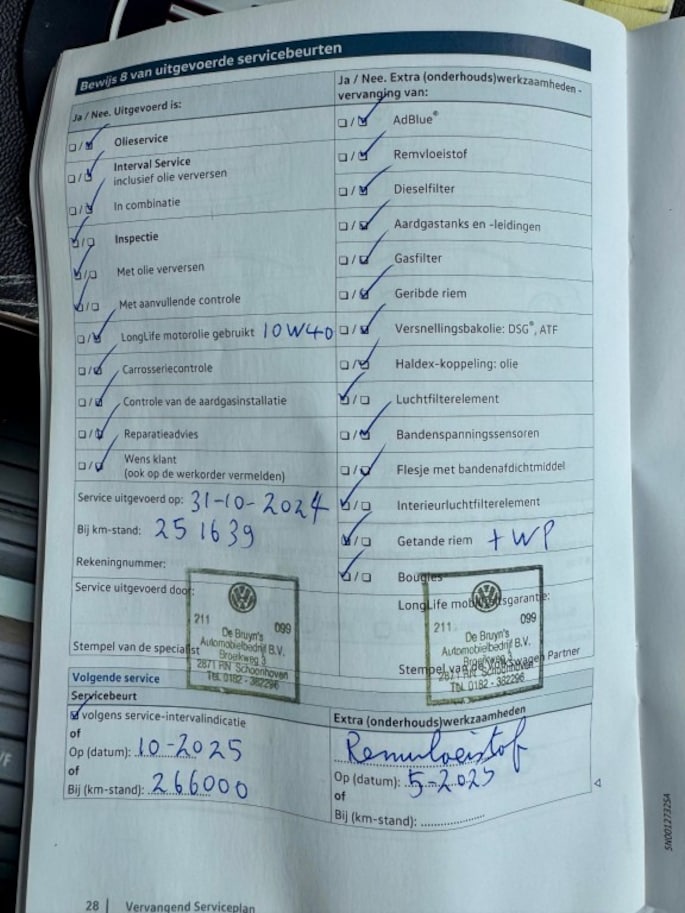 Bewijs 8 van uitgevoerde servicebeurten
Ja / Nee. Uitgevoerd is:
☐/☑ Olieservice
☐/☑ Interval Service
inclusief olie verversen
☐/☑ In combinatie
☑/☐ Inspectie
☑/☐ Met olie verversen
☑/☐ Met aanvullende controle
☐/☑ LongLife motorolie gebruikt 10W40
☐/☑ Carrosseriecontrole
☐/☑ Controle van de aardgasinstallatie
☐/☑ Reparatieadvies
☐/☑ Wens klant
(ook op de werkorder vermelden)
Service uitgevoerd op: 31-10-2024
Bij km-stand: 251639
Rekeningnummer:
Service uitgevoerd door:
Stempel van de specialist
211 099
De Bruyn's
Automobielbedrijf B.V.
Broekweg 3
2871 RN Schoonhoven
Tel. 0182 - 382296
Ja / Nee. Extra (onderhouds)werkzaamheden -
vervanging van:
☐/☑ AdBlue®
☐/☑ Remvloeistof
☐/☑ Dieselfilter
☐/☑ Aardgastanks en -leidingen
☐/☑ Gasfilter
☐/☑ Geribde riem
☐/☑ Versnellingsbakolie: DSG®, ATF
☐/☑ Haldex-koppeling: olie
☑/☐ Luchtfilterelement
☐/☑ Bandenspanningssensoren
☐/☑ Flesje met bandenafdichtmiddel
☑/☐ Interieurluchtfilterelement
☑/☐ Getande riem + WP
☑/☐ Bougies
LongLife mobiliteitsgarantie:
Stempel van de Volkswagen Partner
211 099
De Bruyn's
Automobielbedrijf B.V.
Broekweg 3
2871 RN Schoonhoven
Tel. 0182 - 382296
Volgende service
Servicebeurt
☑ volgens service-intervalindicatie
of
Op (datum): 10-2025
of
Bij (km-stand): 266000
Extra (onderhouds)werkzaamheden
Remvloeistof
Op (datum): 5-2025
of
Bij (km-stand): ................
28 | Vervangend Serviceplan
SN0012732SA